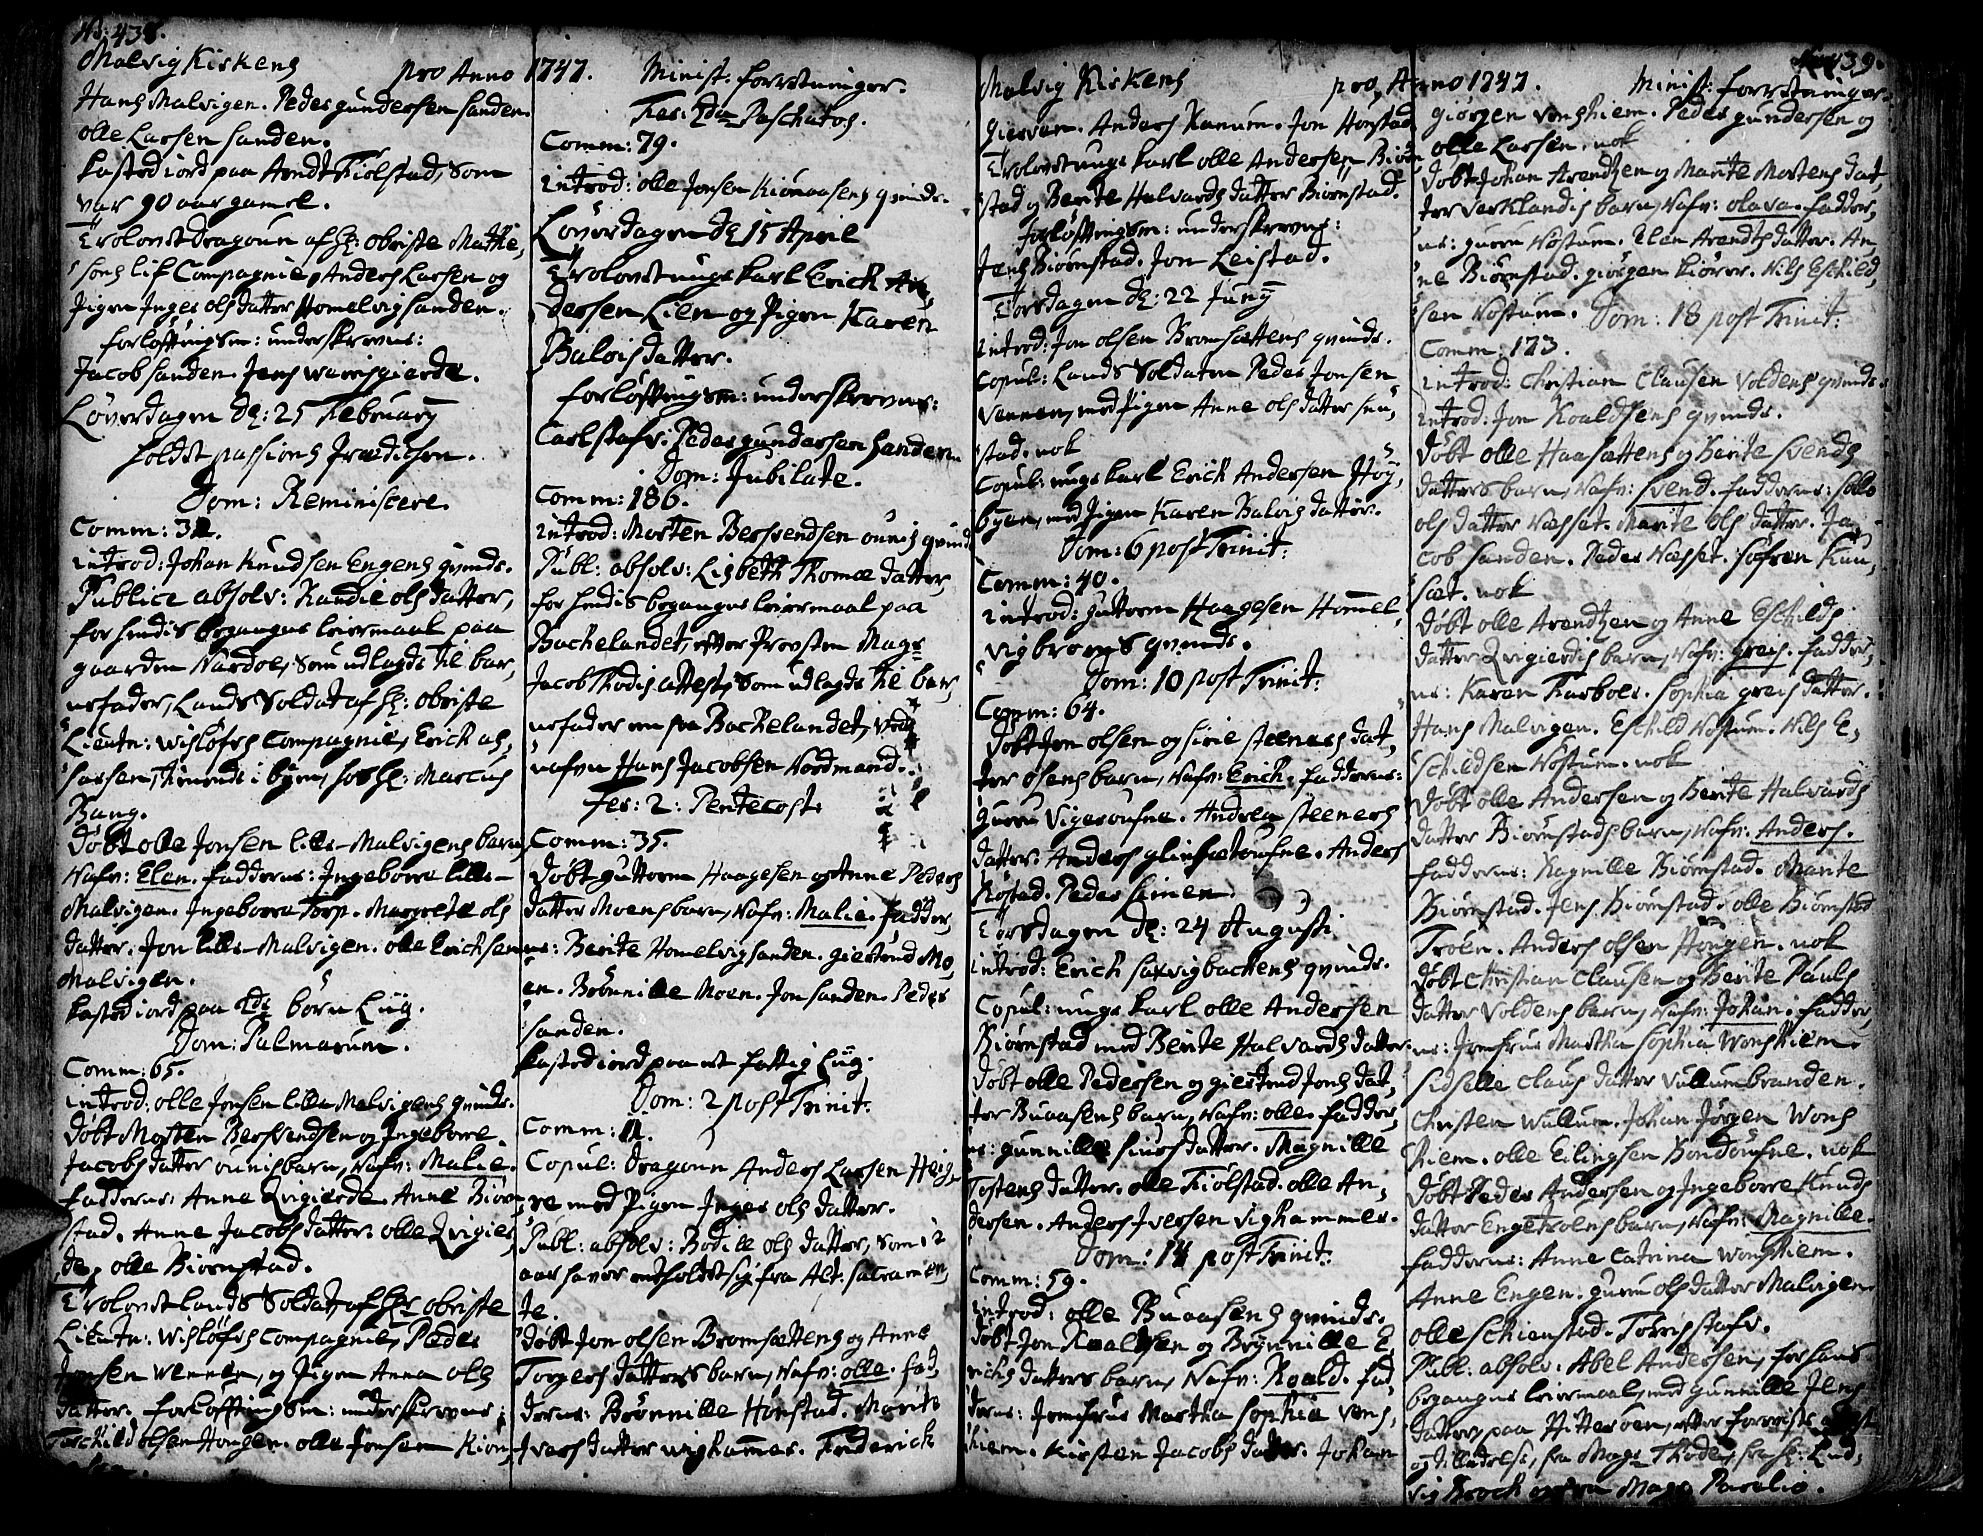 No: 438.
Malvig Kirkens pro Anno 1747. Minist: forretninger.
Hans Malvigen. Peder gundersen sanden.
olle Larsen sanden.
kasted iord paa Arndt Fiölstad, som
var 90 aar gamel.
Trolovet Dragoun af Hr: obriste Matthi,
sens lif Compagnie, Anders Larsen og
Pigen Inger ols datter Homelvigsanden.
forlöftingsm: underskrevne:
Jacob sanden. Jens
Löverdagen d: 25 February
holdt passions Prædichen.
Dom: Reminiscere
Comm:
introd: Johan Knudsen Engens qvinde.
Publice absolv: Randie ols datter,
for hendis begangne leiermaal paa
gaarden Nardoe, som udlagde til bar,
nefader, Lands Soldat af Hr: obriste
Lieutn: Wislöfs Compagnie, Erick
tienende i byen, hos Hr: Marcus
Bang.
Döbt olle Jonsen lille-Malvigens barn,
Nafn: Elen. fadderne: Ingeborre lille-
Malvigen. Ingeborre Torp. Margrete ols
datter. Jon lille-Malvigen. olle Erichsen
Malvigen.
kasted iord paa 2de börn Liig.
Dom: Palmarum.
Comm: 65.
introd: olle Jonsen lille Malvigens qvinde.
Döbt Morten Berssvendsen og Ingeborre
Jacobs datter ounis barn, Nafn: Malie.
fadderne: Anne Qvigierde. Anne Biörn
stad. Anne Jacobs datter. olle Qvigier,
de, olle Biörnstad.
Trolovet lands Soldat af Hr obriste
Lieutn: Wislöfs Compagnie, Peder
Jonsen Wennen, og Pigen Anna ols
datter. forlöfftingsm: underskrevne:
olsen Hougen. olle Jonsen Kiön,
Fer: 2da Paschatos.
Comm: 79.
introd: olle Jonsen Kiönaasens qvinde.
Löverdagen d: 15 April
Trolovet unge karl Erick An,
dersen Lien og Pigen Karen
Balvis datter.
forlöftingsm: underskrevne:
Carl stafr. Peder gundersen sanden.
Dom: Jubilate.
Comm: 186.
introd: Morten Berssvendsen ounis qvinde
Publ: absolv: Lisbeth Thomæ datter,
for hendis begangne leiermaal paa
Backelandet, efter Provsten Mag:
Jacob Thodis attest, som udlagde til bar,
nefader en paa Backelandet, ved
nafn Hans Jacobsen Nordmand.
Fer: 2: Pentecost:
Comm: 35.
Döbt guttorm Haagesen og Anne Peders
datter Moens barn, Nafn: Malie. fadder,
ne: Berite Homelvigsanden. giertrud Mo,
en. Brönnille Moen. Jon sanden. Peder
sanden.
kasted iord paa et fattig Liig.
Dom: 2 post Trinit:
Comm: 11.
Copul: Dragoun Anders Larsen
med Pigen Inger ols datter.
Publ: absolv: Bodille ols datter, som i 2
aar haver entholdet sig fra Alt: sacramen,
te.
Döbt Jon olsen Bromsættens og Anne
Torgers datters barn, Nafn: olle. fad,
derne: Brönnille Hönstad. Marite
Ivers datter wighammer. Frederich
439.
Malvig Kirkens pro Anno 1747. Minist: forretninger.
Anders Kanum. Jon Honstad
Trolovet unge karl olle Andersen Biörn
stad og Berite Halvards datter Biörnstad.
forlöftingsm: underskrevne:
Jens Biörnstad. Jon Leistad.
Torsdagen d: 22 Juny
introd: Jon olsen Bromsættens qvinde.
Copul: Lands Soldaten Peder Jonsen
Vennen, med Pigen Anne ols datter
stad. nok
Copul: unge karl Erick Andersen Höy,
byen, med Pigen Karen Balvis datter.
Dom: 6 post Trinit:
Comm: 40.
introd: guttorm Haagesen Homel,
vigbroens qvinde.
Dom: 10 post Trinit:
Comm: 64.
Döbt Jon olsen og Sirie steeners dat,
ter osens barn, Nafn: Erich. fadderne:
guru Vigeroufne. Andrea steeners
datter. Anders Anders
Röstad. Peder
Torsdagen d: 24 Augusti
introd: Erick saxvigbackens qvinde.
Copul: unge karl olle Andersen
Biörnstad med Berite Halvards datter.
Döbt olle Pedersen og giertrud Jens dat,
ter Buaasens barn, Nafn: olle. fadder,
ne: gunnille siurs datter. Magnille
Tostens datter. olle Fiölstad. olle An,
dersen. Anders Iversen vighammer.
Dom: 14 post Trinit:
Comm: 59.
introd: olle Buaasens qvinde.
Döbt Jon Roaldsen og Brynnille E,
richs datters barn, Nafn: Roald. fad,
derne: Jomfrue Martha Sophia Vens,
hiem. Kirsten Jacobs datter. Johan
giörgen Venshiem. Peder gundersen og
olle Larsen. nok
Döbt Johan Arendtzen og Marite Mortens dat,
ter verklandis barn, Nafn: olava. fadder,
ne: guru Nostum. Elen Arendts datter. An,
ne Biörnstad. giörgen Nils Eschild,
sen Nostum. Dom: 18 post Trinit:
Comm: 173.
introd: Christian Clausen Voldens qvinde.
introd: Jon Roaldsens qvinde.
Döbt olle Haasættens og Berite svends
datters barn, Nafn: svend. fadderne:
ols datter Næsset. Marite ols datter. Ja,
cob sanden. Peder Næsset. söfren
sæt. nok
Döbt olle Arendtzen og Anne Eschilds
datter Qvigierdis barn, Nafn: greis. fadder,
ne: Karen Sophia greis datter.
Hans Malvigen. Eschild Nostum. Nils E,
schildsen Nostum. nok
Döbt olle Andersen og Berite Halvards
datter Biörnstads barn, Nafn: Anders.
fadderne: Magnille Biörnstad. Marite
Biörnstad. Jens Biörnstad. olle Biörnstad
Tröen. Anders olsen Hougen. nok
Döbt Christian Clausen og Berite Pauls
datter Voldens barn, Nafn: Johan. fadder,
ne: Jomfrue Martha Sophia Wonshiem.
Sidselle Claus datter
Christen Wullum. Johan Jörgen Wons
hiem. olle Eilingsen nok
Döbt Peder Andersen og Ingeborre Knuds
datter Engetröens barn, Nafn: Magnille.
fadderne: Anne Catrina Wonshiem.
Anne Engen. guru ols datter Malvigen
olle schienstad.
Publ: absolv: Abel Andersen, for hans
begangne leiermaal, med gunnille Jens
datter, paa Hitteröen, efter
og tilladelse, fra Mag: Thode, fra Hr: Lud,
vig Broch og fra Mag: